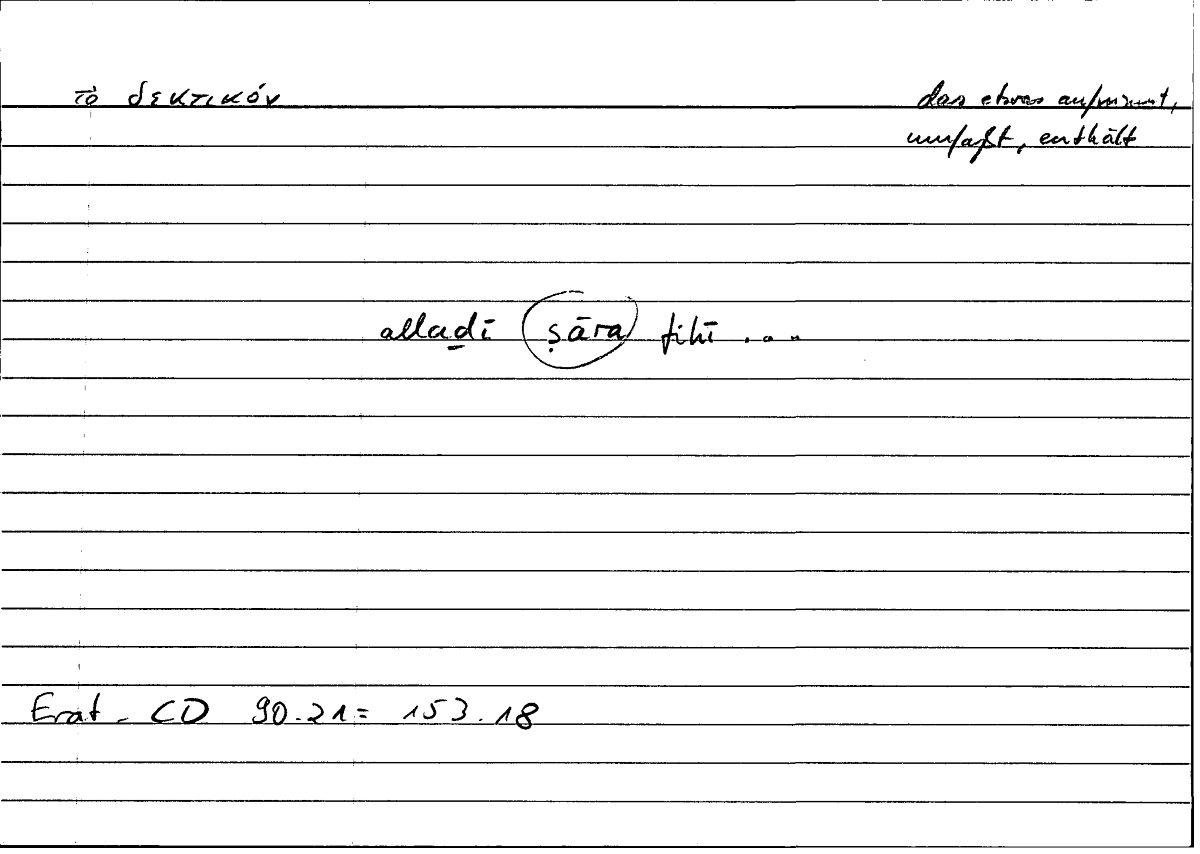 τὸ δεκτικόν
das etwas aufnimmt,
umfaßt, enthält
alladī ṣāra fihī ...
Erat. CD 90.21 = 153.18